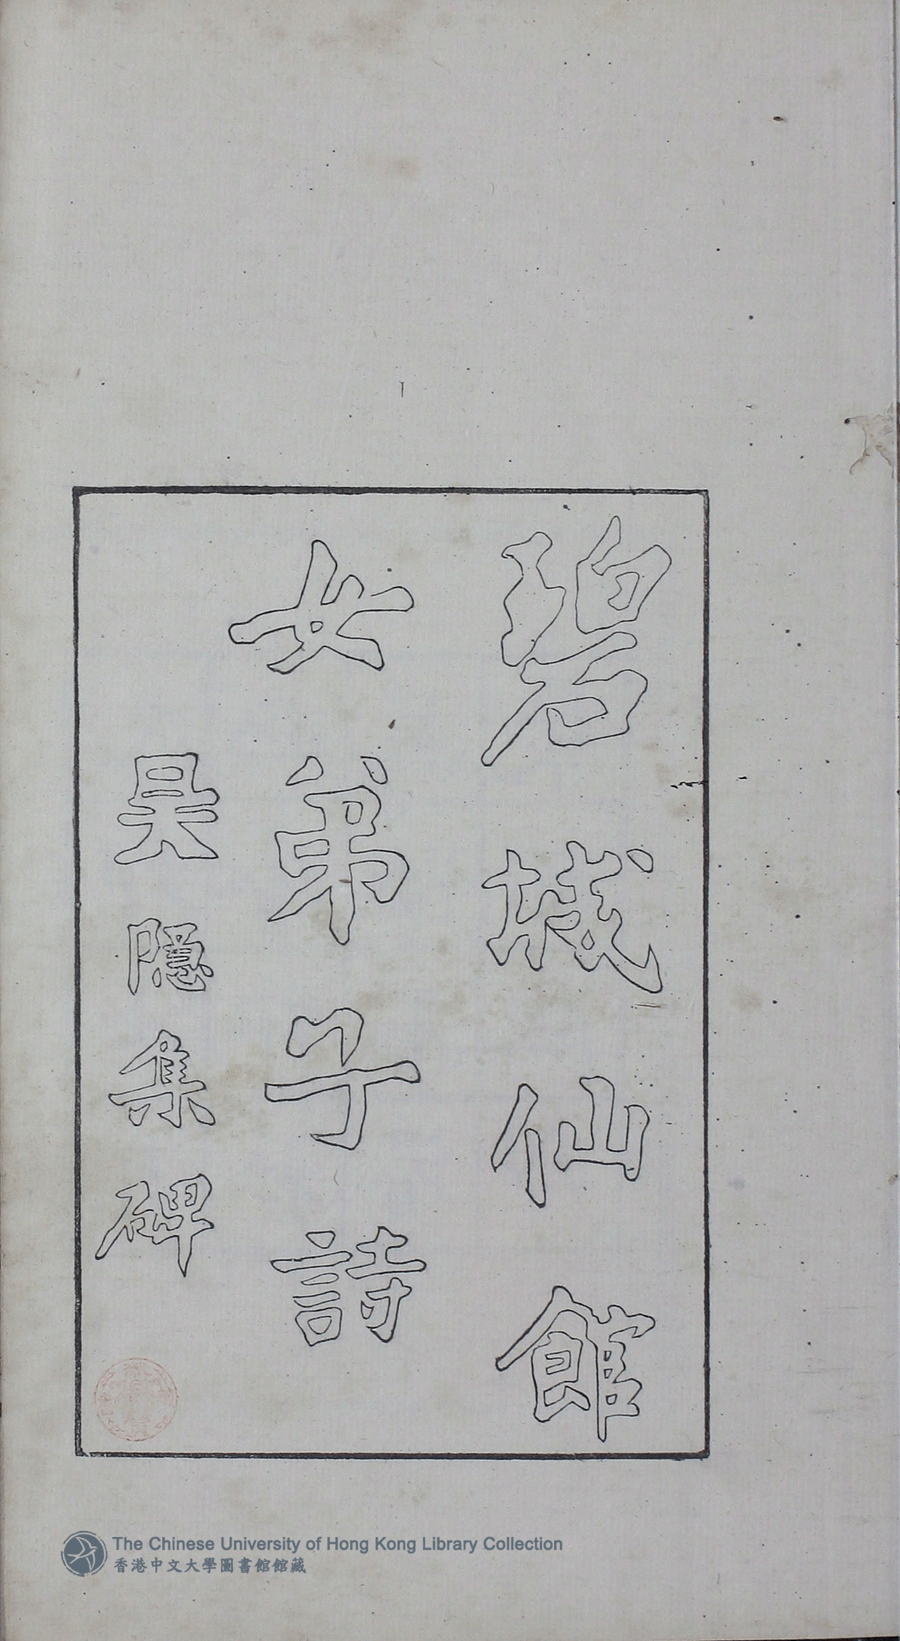 碧城仙館
女弟子詩
昊隱集碑
The Chinese University of Hong Kong Library Collection
香港中文大學圖書館館藏